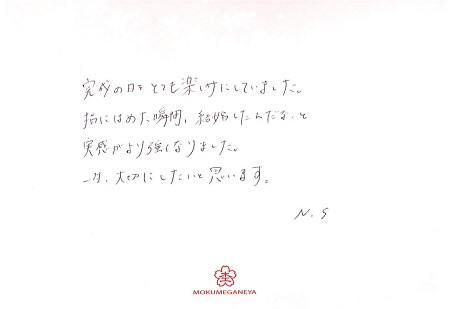 完成の日をとても楽しみにしていました。
指にはめた瞬間、結婚したんだな、と
実感がより強くなりました。
一生、大切にしたいと思います。
N.S
MOKUMEGANEYA